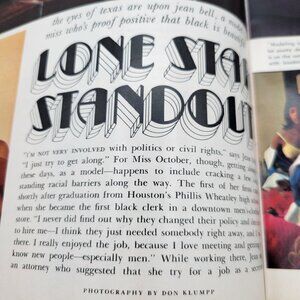 the eyes of texas are upon jean bell, a
miss who's proof positive that black is
LONE STA
STANDOU
"I'M NOT VERY INVOLVED with politics or civil rights," says Jean
"I just try to get along." For Miss October, though, getting
these days, as a model—happens to include cracking a
standing racial barriers along the way. The first of her
shortly after graduation from Houston's Phillis Wheatley high
when she became the first black clerk in a downtown men's-clothi
store. "I never did find out why they changed their policy and
to hire me—I think they just needed somebody right away, and I
there. I really enjoyed the job, because I love meeting and getting
know new people—especially men." While working there, Jean
an attorney who suggested that she try for a job as a secre
PHOTOGRAPHY BY DON KLUMPP
"Modeling